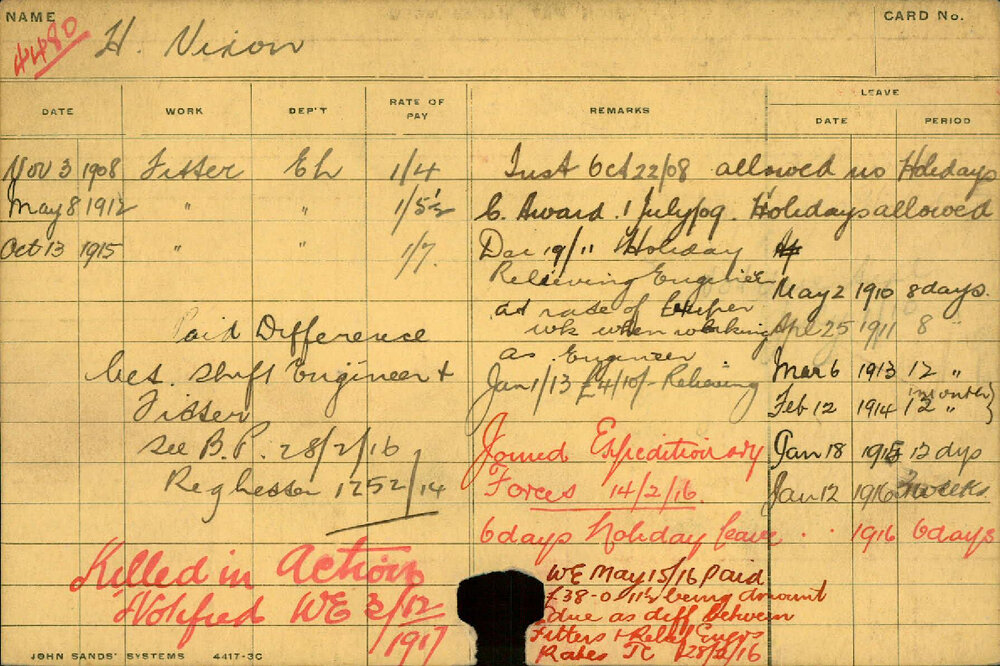 NAME
CARD No.
4480
H. Nixon
DATE
WORK
DEP'T
RATE OF PAY
REMARKS
LEAVE
DATE
PERIOD
Nov 3 1908 Fitter Eh 1/4
May 8 1912 " " 1/5½
Oct 13 1915 " " 1/7.
Paid Difference
bet. Shift Engineer +
Fitter
see B.P. 28/2/16
Reg 1252/14
Inst Oct 22/08 allowed no Holidays
C. Award. 1 July/09. Holidays allowed
Dec 19/11 Holiday
Relieving Engineer
at rate of per
wk when working
as Engineer
Jan 1/13 £4/10/- Relieving
Joined Expeditionary
Forces 14/2/16.
6 days Holiday leave . . 1916 6 days
May 2 1910 8 days.
Apl 25 1911 8 "
Mar 6 1913 12 "
Feb 12 1914 12 "
month
Jan 18 1915 12 dys
Jan 12 1916 3 weeks
Killed in Action
Notified WE 3/12/1917
WE May 15/16 Paid
£38-0-11½ being amount
due as diff between
Fitters + Relief Engrs
Rates TC 28/2/16
JOHN SANDS' SYSTEMS 4417-3C